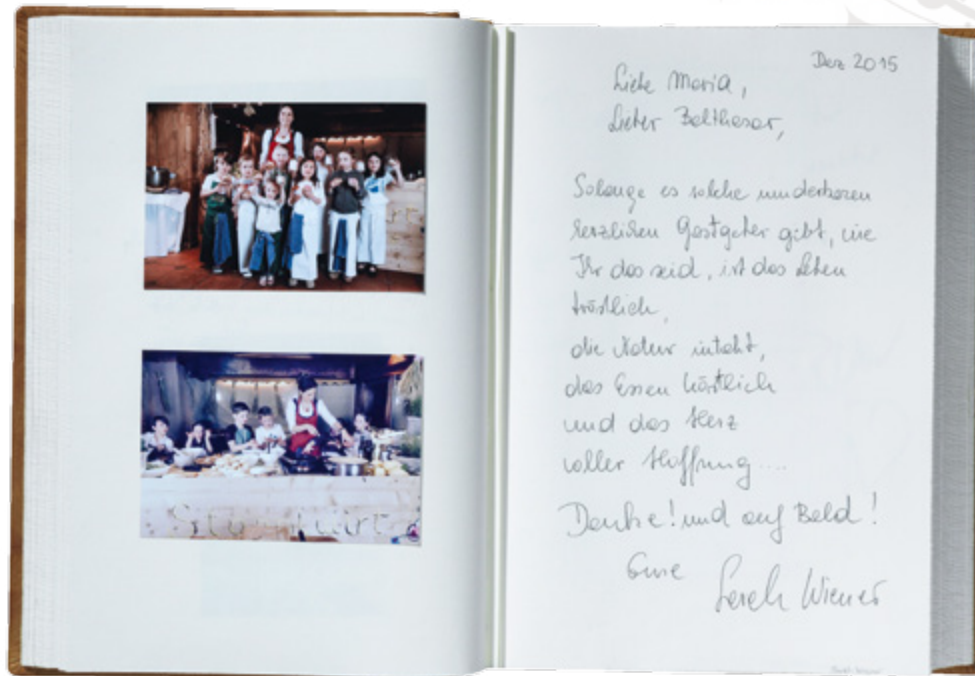 Dez 2015
Liebe Maria,
Lieber Balthasar,
Solange es solche wunderbaren
herzlichen Gastgeber gibt, wie
Ihr das seid, ist das Leben
tröstlich,
die Natur intakt,
das Essen köstlich
und das Herz
voller Hoffnung....
Danke! und auf Bald!
Eure
Sarah Wiener